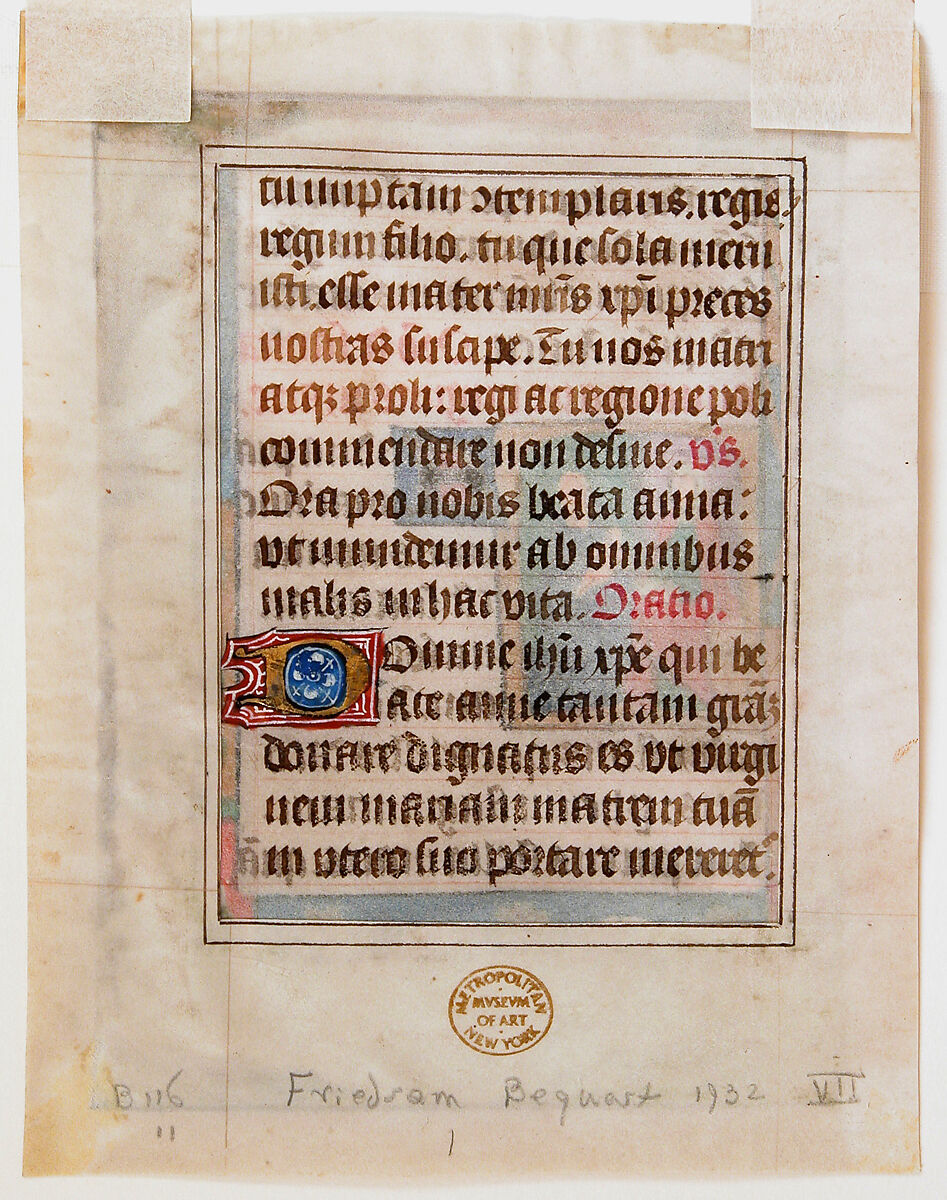 tu nuptam ↄtemplaris. regis
regum filio. tu que sola meru
isti. esse mater mr̄is xp̄i preces
nostras suscipe. Tu nos matri
atqꝫ proli: regi ac regione poli
commendare non desine. v̊s.
Ora pro nobis beata anna:
vt mundemur ab omnibus
malis in hac vita. Oratio.
Domine ihū xp̄e qui be
ate anne tantam grā̄
donare dignatus es vt virgi
nem mariam matrem tuā
in vtero suo portare mereret᷑.
METROPOLITAN
MVSEVM
OF ART
NEW YORK
B 116 Friedsam Bequest 1932 VII
11